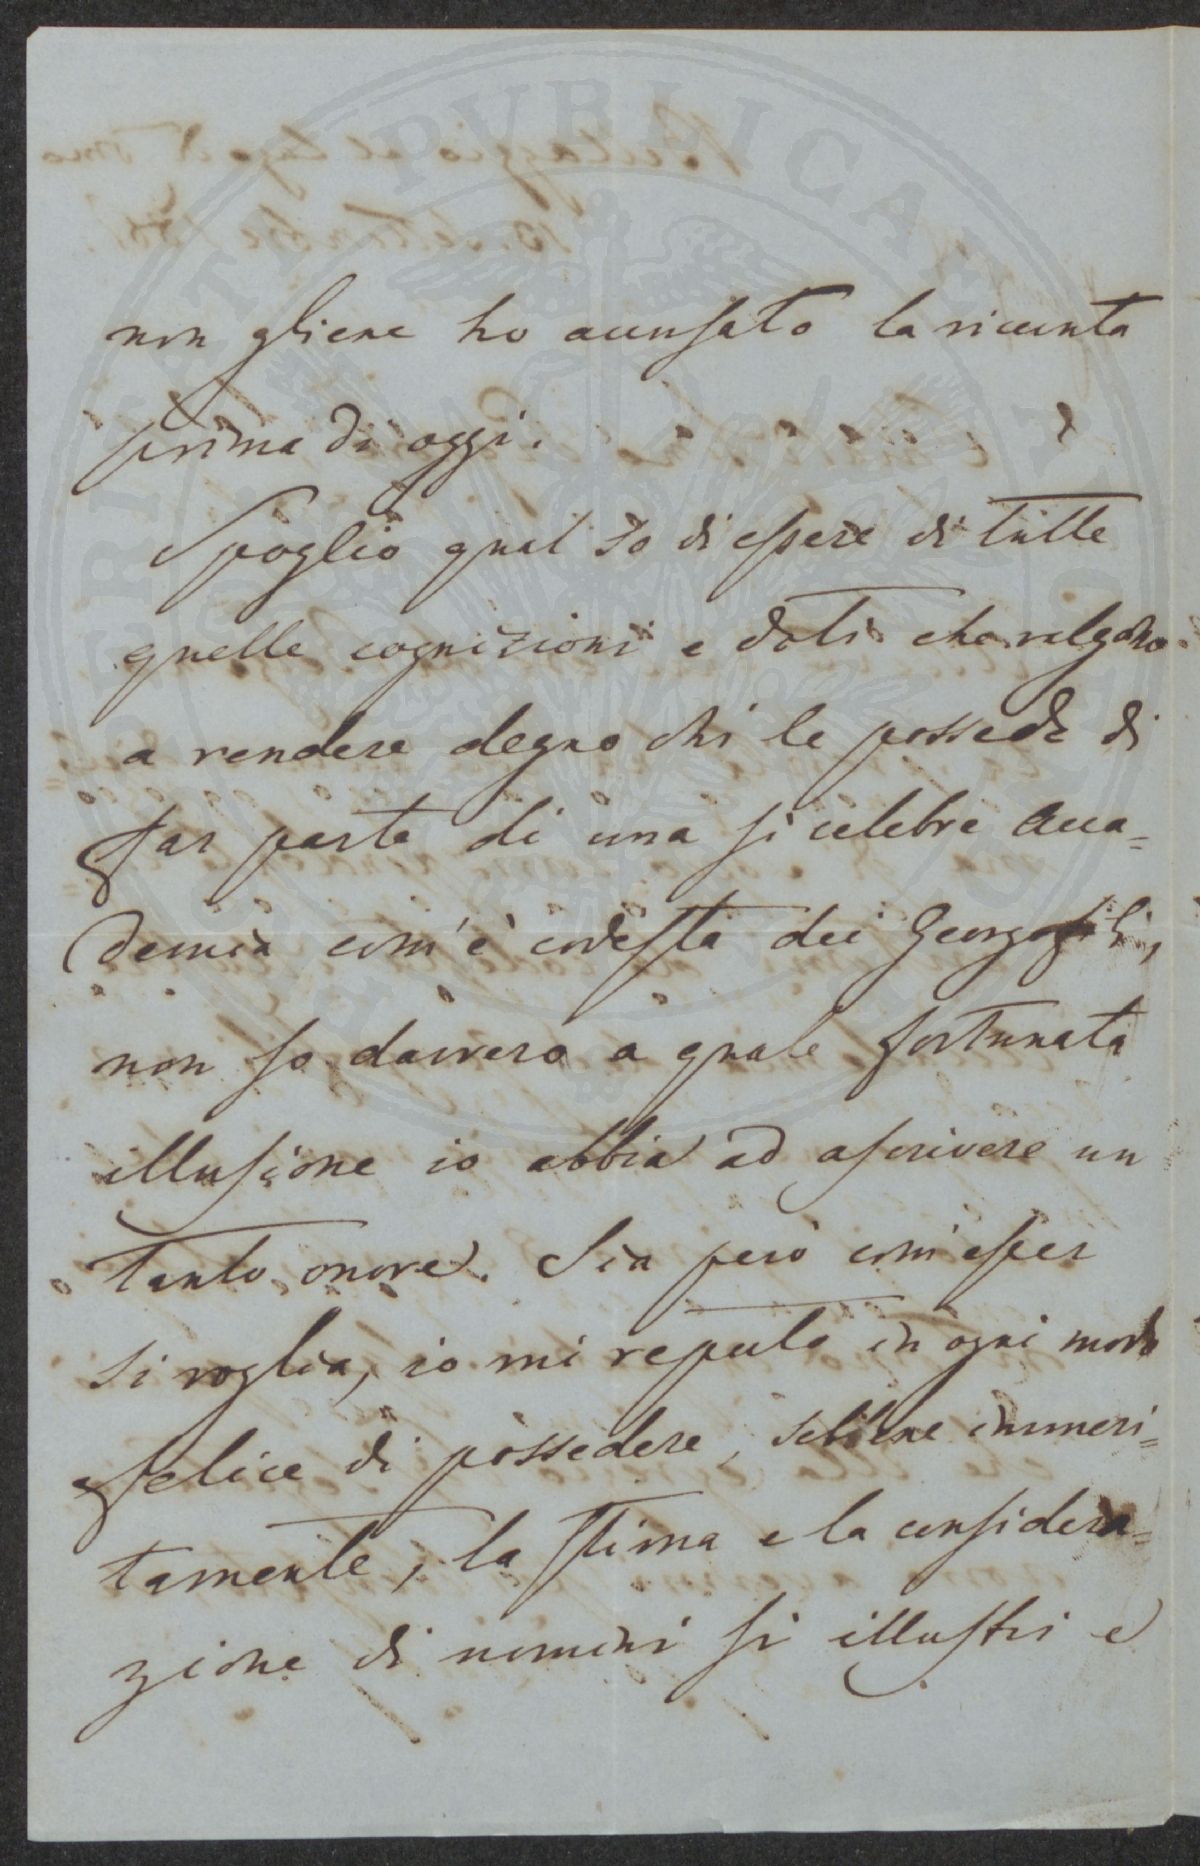 non gliene ho accusato la ricevuta
prima di oggi.
Spoglio qual so di essere di tutte
quelle cognizioni e doti che valgono
a rendere degno chi le possede di
far parte di una sì celebre Acca=
demia com'è codesta dei Georgofili,
non so davvero a quale fortunata
illusione io abbia ad ascrivere un
tanto onore. Sia però com'esser
si voglia, io mi reputo in ogni modo
felice di possedere, sebbene immeri=
tamente, la stima e la considera=
zione di uomini sì illustri e